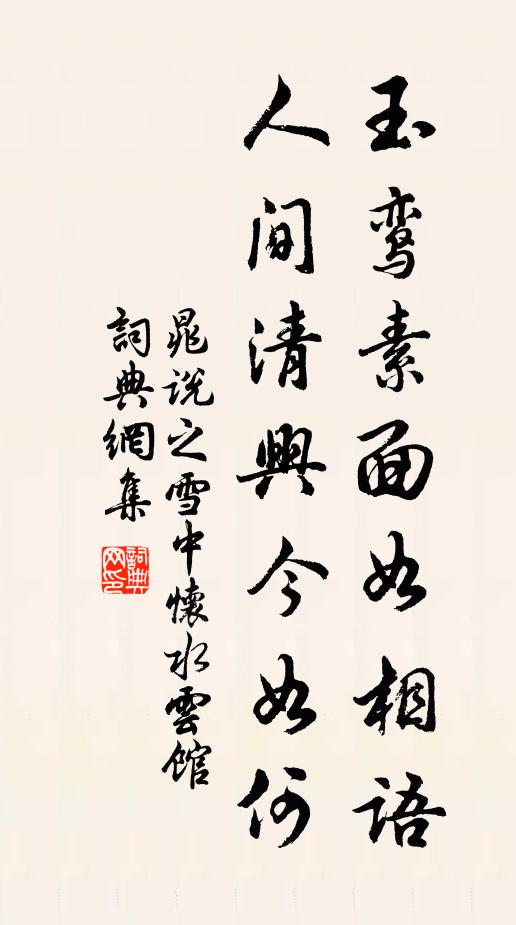 玉鸾素面如相语
人間清興今如何
晁説之雪中懷水雲馆
詞典網集
詞典网印